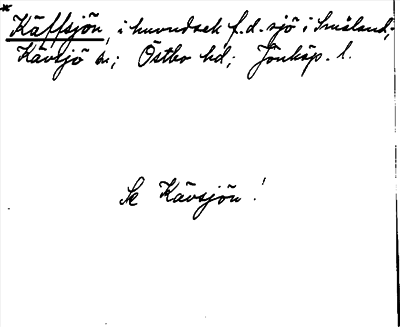 * Käffsjön, i huvudsak f.d. sjö i Småland;
Kävsjö sn; Östbo hd; Jönköp. l.
Se Kävsjön!